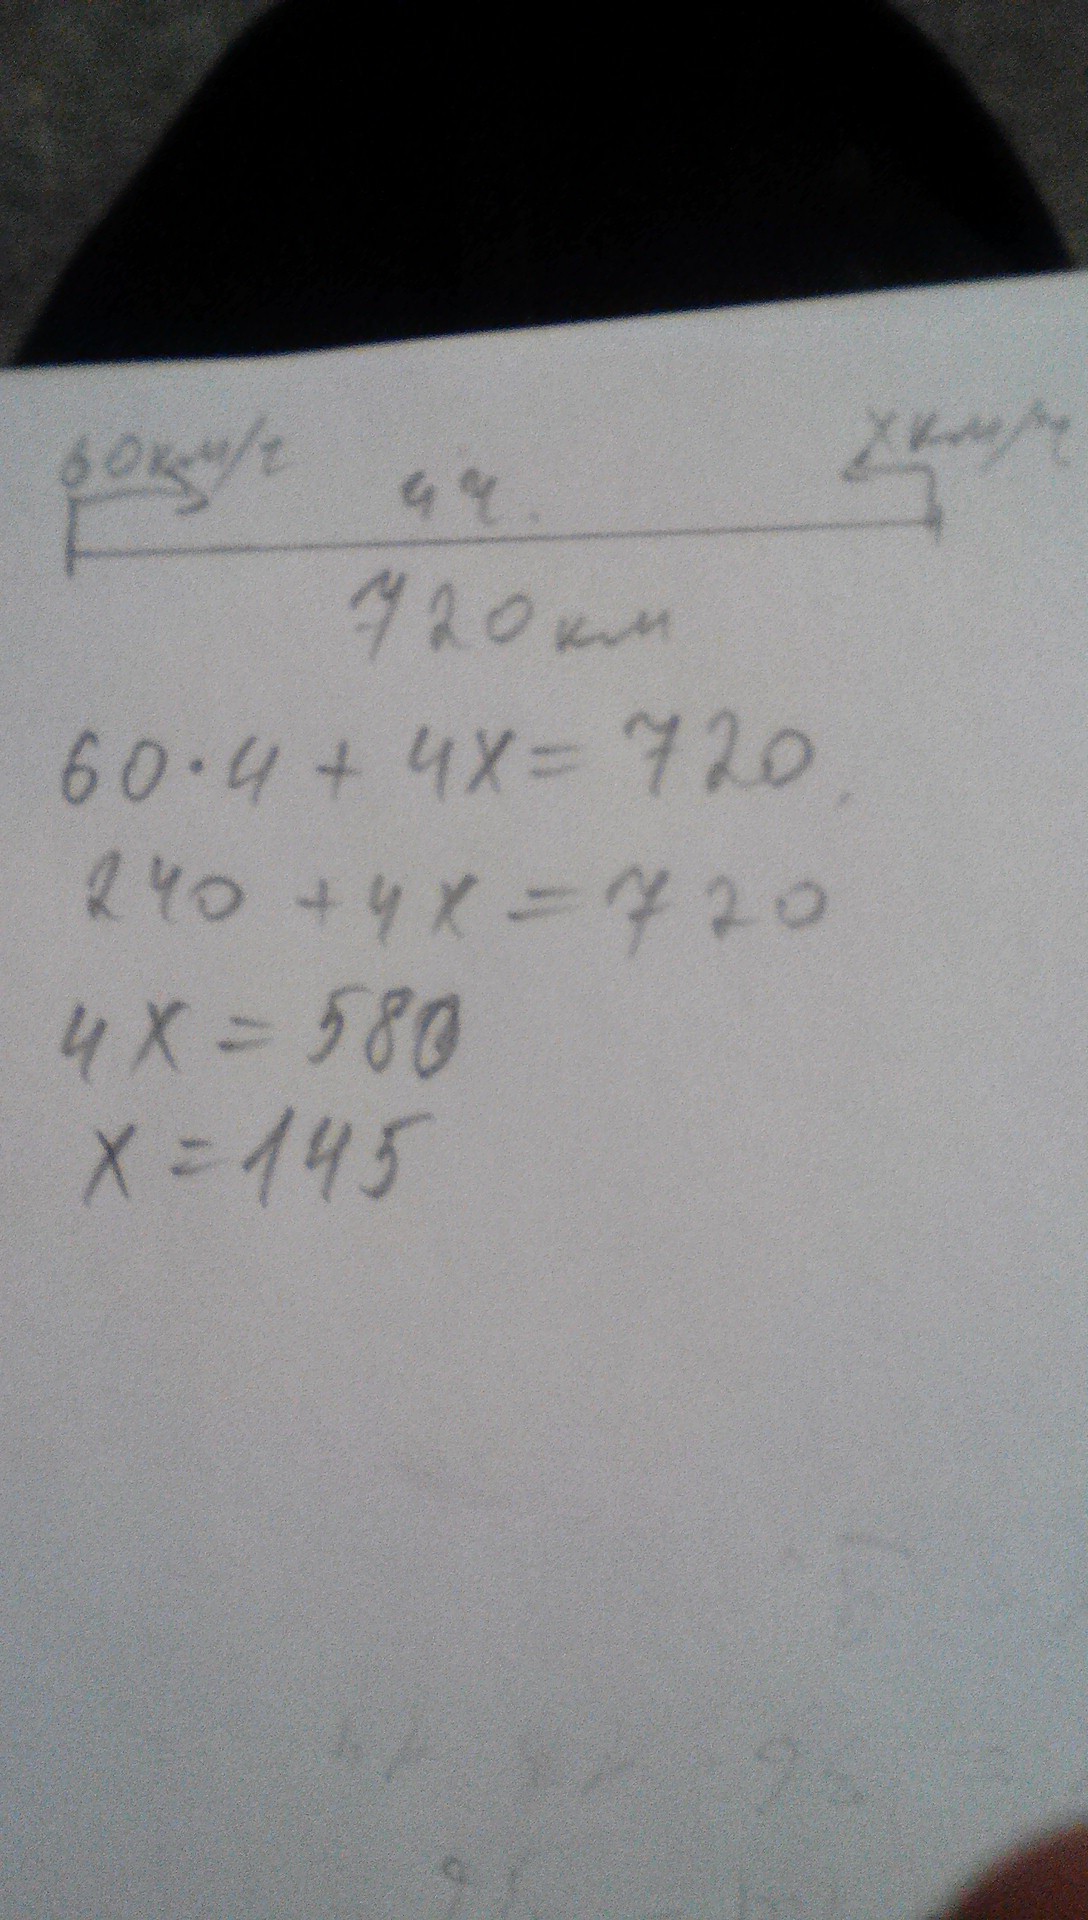 60км/ч 4ч. xкм/ч
720км
60·4 + 4x = 720
240 + 4x = 720
4x = 580
x = 145